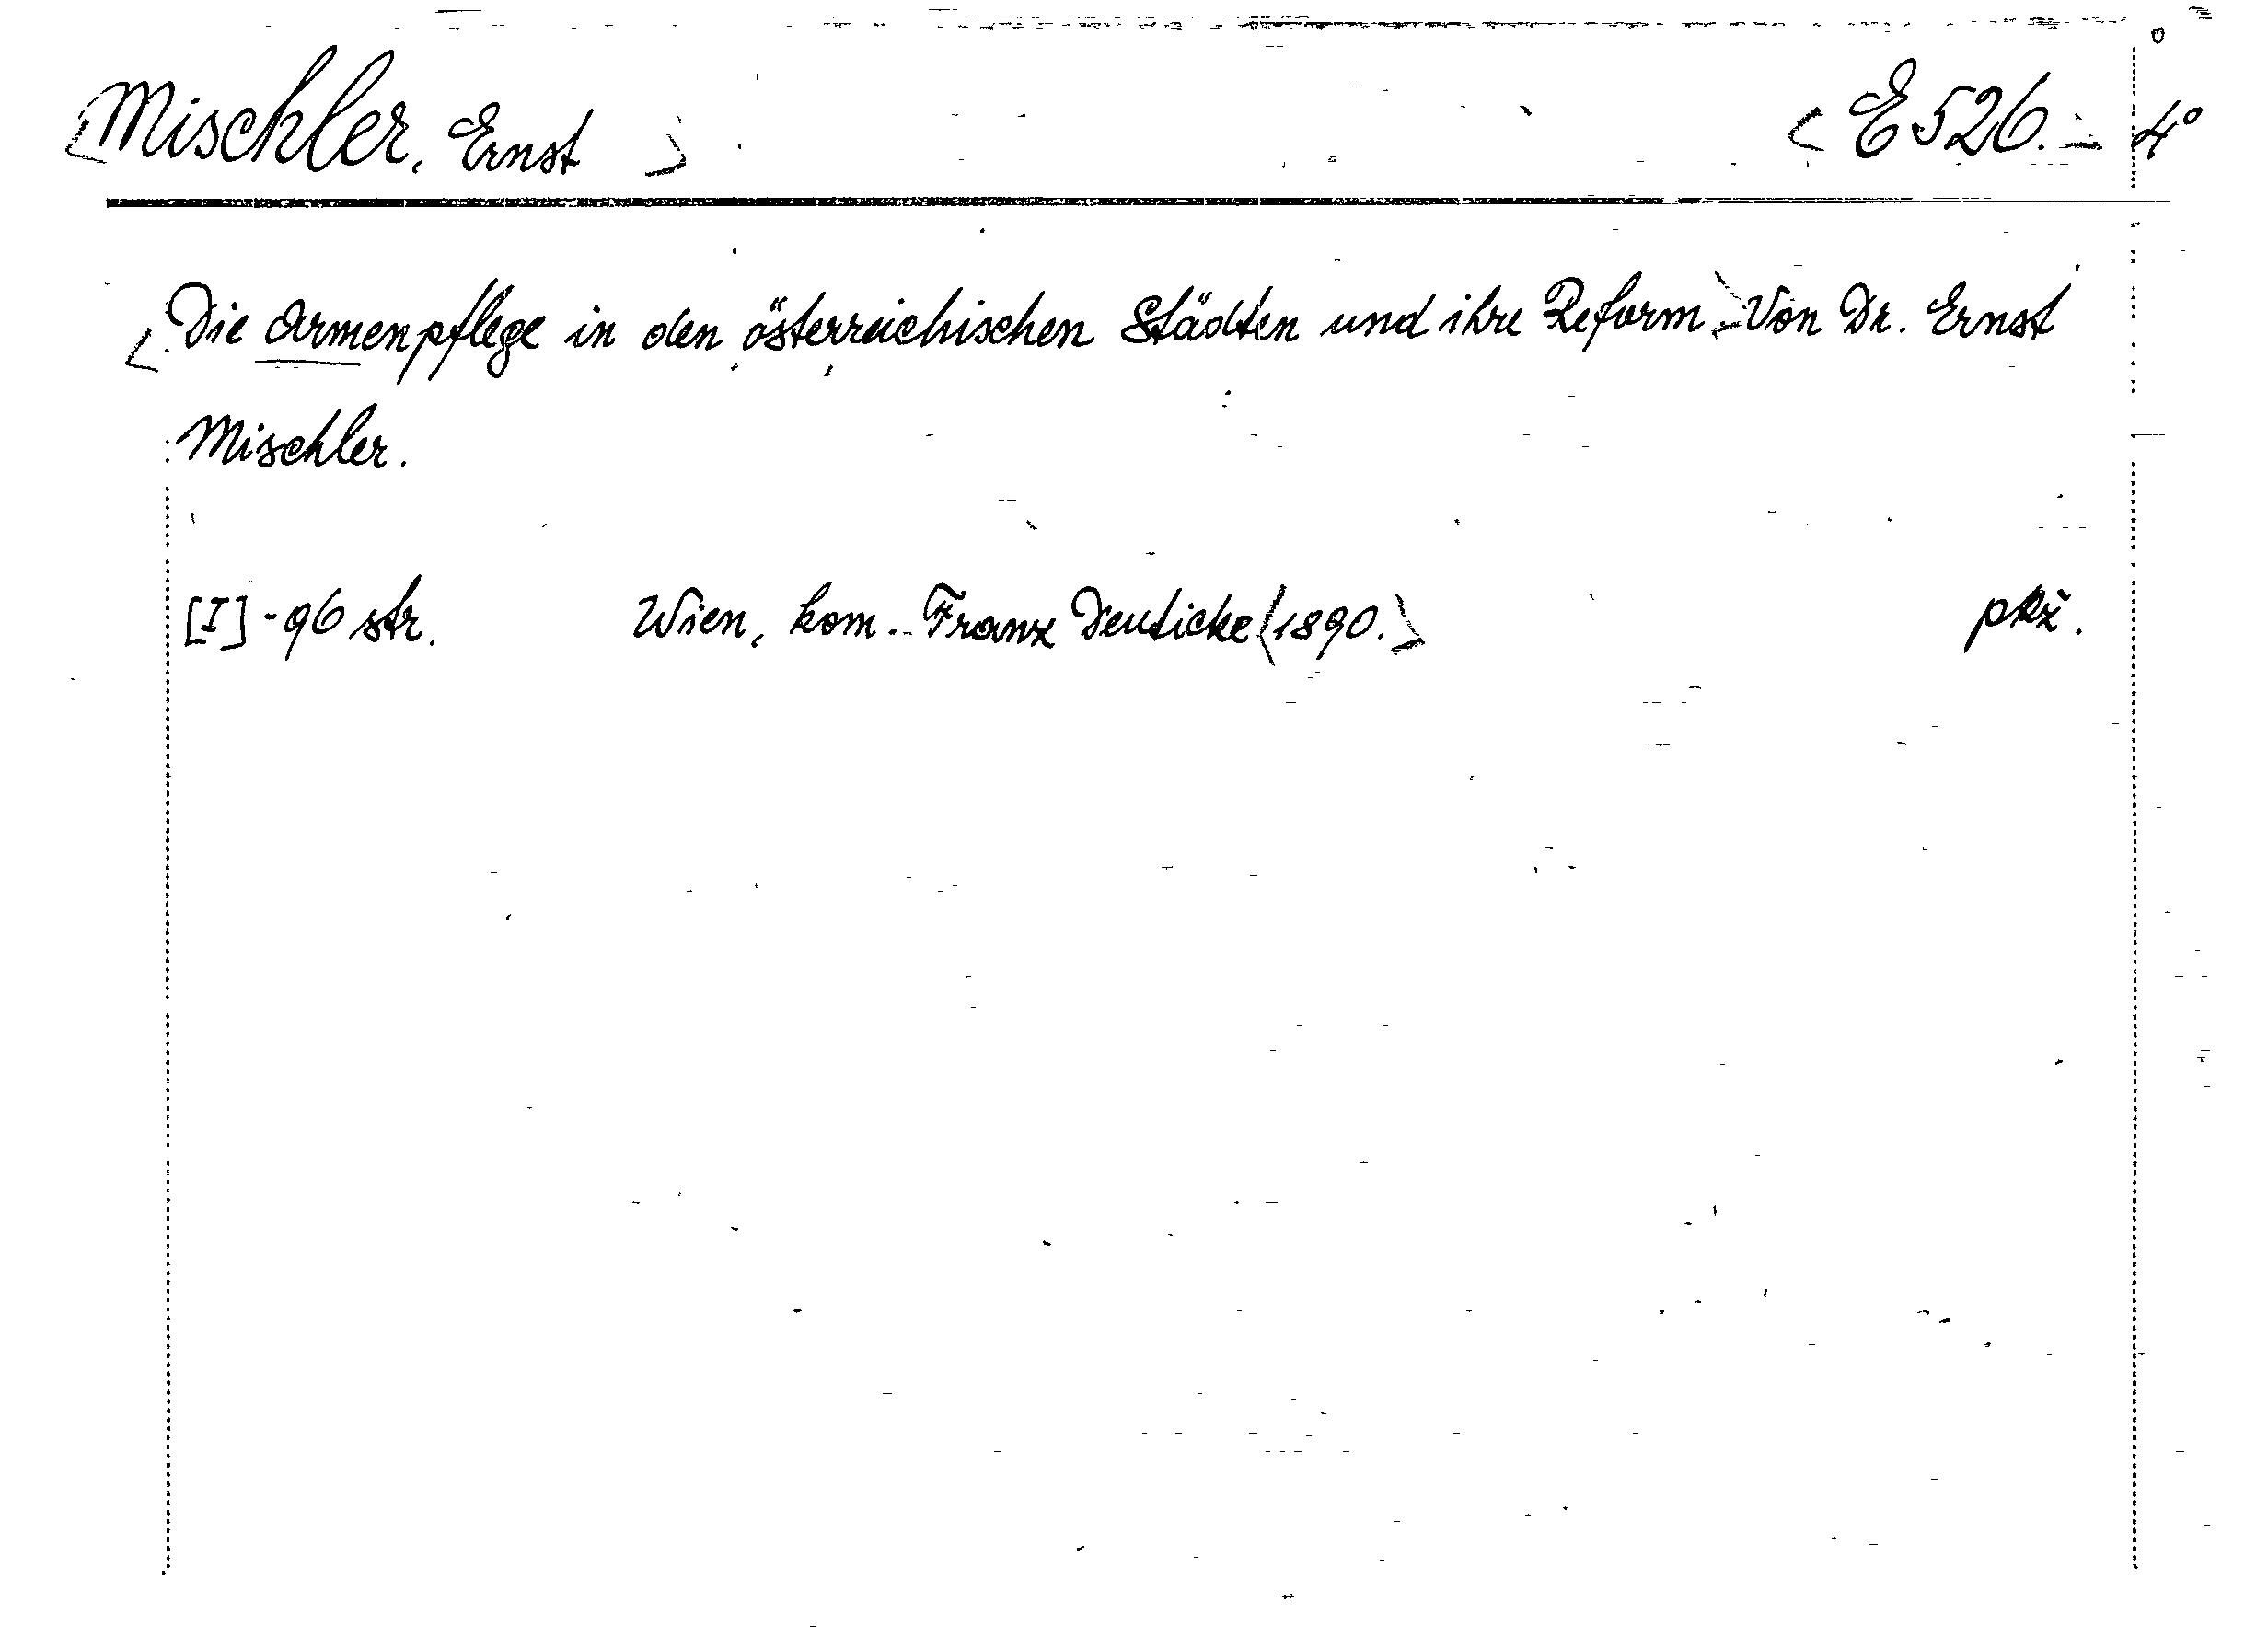 <Mischler, Ernst> <E 526.- 4°
<Die Armenpflege in den österreichischen Städten und ihre Reform.> Von Dr. Ernst
Mischler.
[I]-96 str. Wien, kom. Franz Deuticke <1890.> pkž.